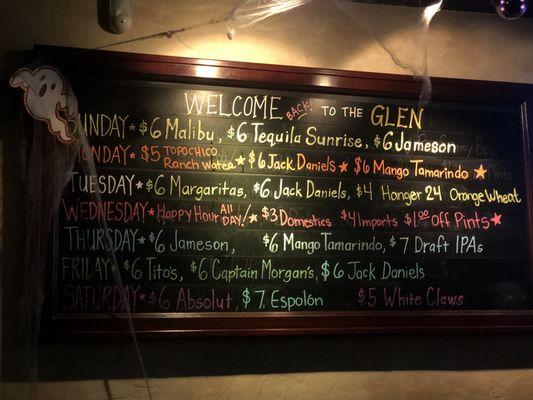 WELCOME BACK! TO THE GLEN
SUNDAY ★ $6 Malibu, $6 Tequila Sunrise, $6 Jameson
MONDAY ★ $5 TOPOCHICO Ranch Water ★ $6 Jack Daniels ★ $6 Mango Tamarindo ★
TUESDAY ★ $6 Margaritas, $6 Jack Daniels, $4 Hanger 24 Orange Wheat
WEDNESDAY ★ Happy Hour ALL DAY! ★ $3 Domestics $4 Imports $1.00 Off Pints ★
THURSDAY ★ $6 Jameson, $6 Mango Tamarindo, $7 Draft IPAs
FRIDAY ★ $6 Tito's, $6 Captain Morgan's, $6 Jack Daniels
SATURDAY ★ $6 Absolut, $7 Espolón $5 White Claws